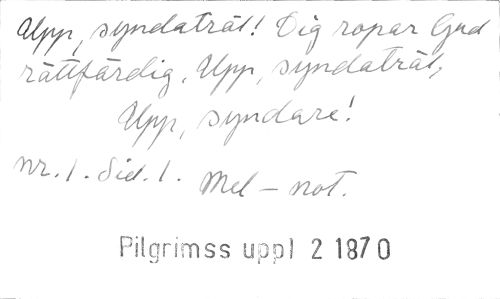 Upp, syndaträl! Dig ropar Gud
rättfärdig, Upp, syndaträl,
Upp, syndare!
nr. 1. Sid. 1. Mel – not.
Pilgrimss uppl 2 1870